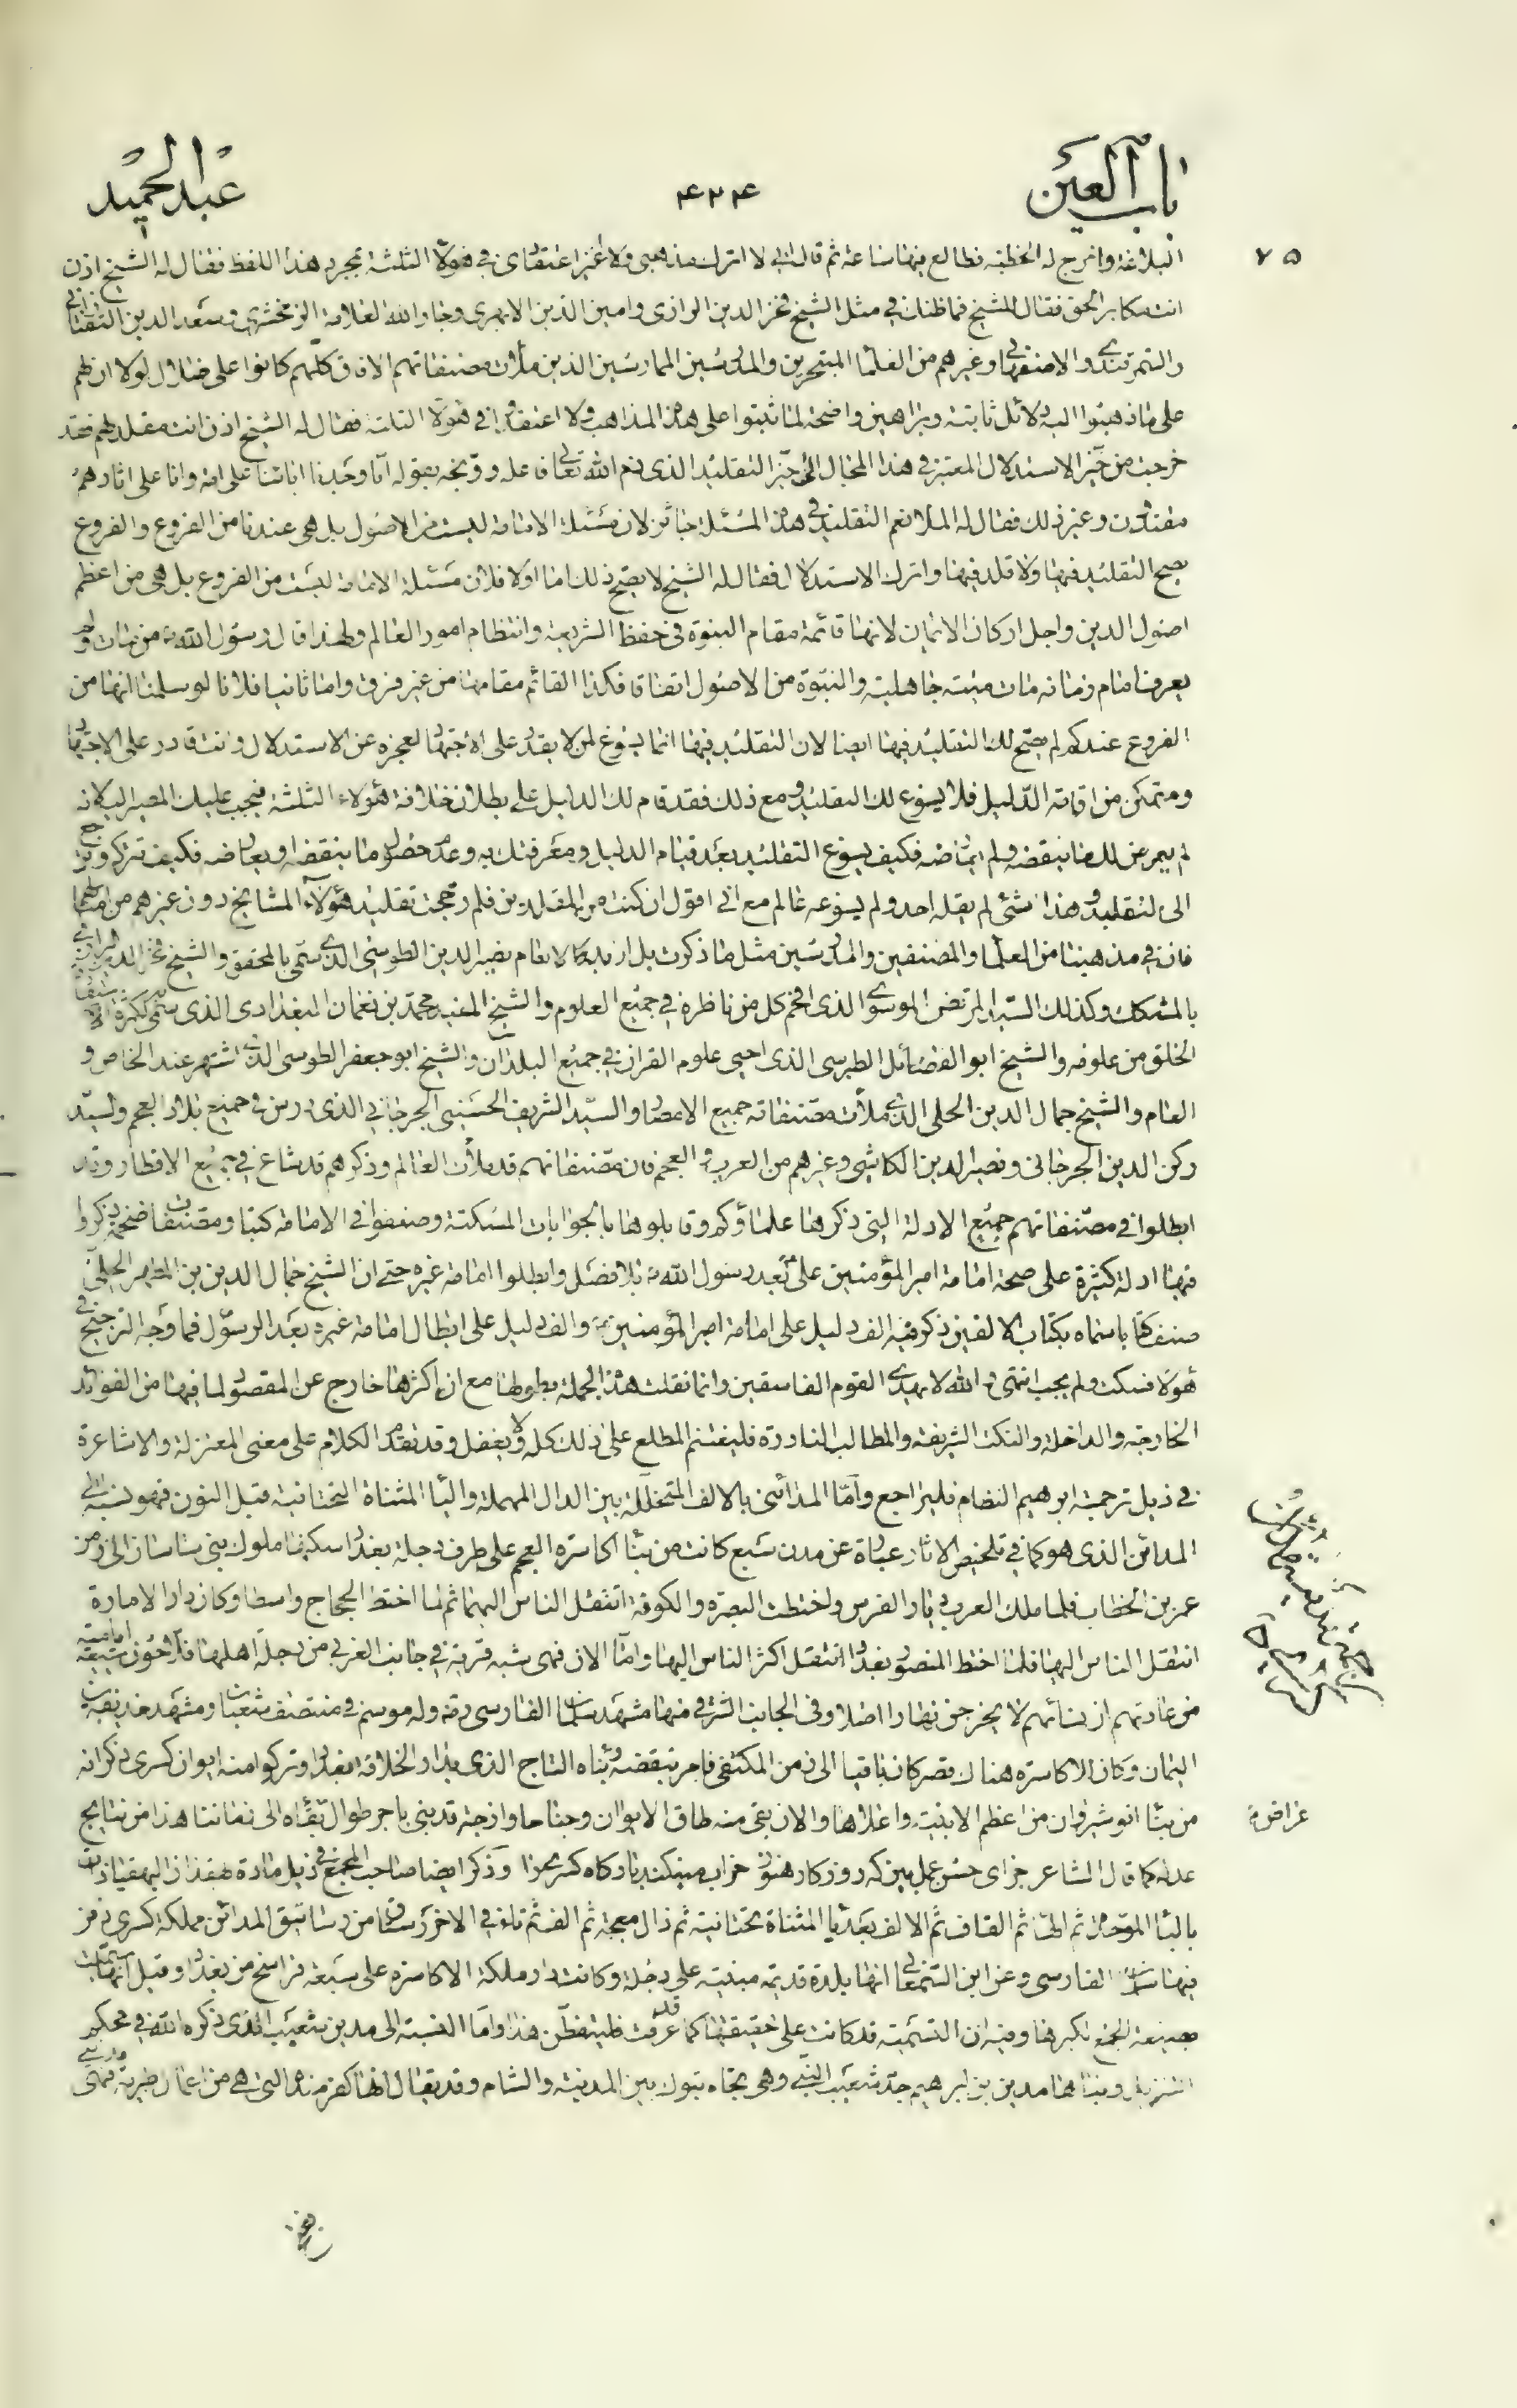 باب العين
۴۲۴
عبد الحميد
۷۵
البلاغة واخرج له الخطبة فطالع فيها ساعة ثم قال اني لا اترك مذهبي ولا اغير اعتقادى في هؤلاء الثلثة بمجرد هذا اللفظ فقال له الشيخ اذن
انت مكابر الحق فقال للشيخ فما ظنك في مثل الشيخ فخر الدين الرازى وامين الدين الابهرى وجار الله العلامة الزمخشرى وسعد الدين التفتازانى
والاصفهانى وغيرهم من العلماء المتبحرين والمدرسين الممارسين الذين ملأت مصنفاتهم الافاق كلهم كانوا على ضلال لولا ان لهم
على ما ذهبوا اليه دلائل ثابتة وبراهين واضحة لما ثبتوا على هذه المذاهب ولا اعتقدوا في هؤلاء الثلثة فقال له الشيخ اذن انت مقلد لهم فقد
خرجت من حيز الاستدلال المعتبر في هذا المجال الى حيز التقليد الذى ذم الله تعالى فاعله ووبخه بقوله انا وجدنا اباءنا على امة وانا على اثارهم
مقتدون وغير ذلك فقال له الملا نعم التقليد في هذه المسئلة جائز لان مسئلة الامامة ليست من الاصول بل هى عندنا من الفروع والفروع
يصح التقليد فيها ولا قلد فيها واترك الاستدلال فقال له الشيخ لا يصح ذلك اما اولا فلان مسئلة الامامة ليست من الفروع بل هى من اعظم
اصول الدين واجل اركان الايمان لانها قائمة مقام النبوة في حفظ الشريعة وانتظام امور العالم ولهذا قال رسول الله ص من مات ولم
يعرف امام زمانه مات ميتة جاهلية والنبوة من الاصول اتفاقا فكذا القائم مقامها من غير فرق واما ثانيا فلانا لو سلمنا انها من
الفروع عندكم لم يصح لك التقليد فيها ايضا لان التقليد فيها انما يسوغ لمن لا يقدر على الاجتهاد لعجزه عن الاستدلال وانت قادر على الاجتهاد
ومتمكن من اقامة الدليل فلا يسوغ لك التقليد ومع ذلك فقد قام لك الدليل على بطلان خلافة هؤلاء الثلثة فيجب عليك المصير اليه لانه
لم يعرض لك ما ينقضه ولم فكيف يسوغ التقليد بعد قيام الدليل ومعرفتك به وعدم حصول ما ينقضه او يعارضه فكيف تتركه وترجع
الى التقليد وهذا شئ لم يقله احد ولم يسوغه عالم مع انى اقول ان كنت من المقلدين فلم رجحت تقليد هؤلاء المشايخ دون غيرهم من العلماء
فان في مذهبنا من العلماء والمصنفين والمدرسين مثل ما ذكرت بل ازيد كالامام نصير الدين الطوسى الذى سمى بالمحقق والشيخ
وكذلك السيد المرتضى الموسوى الذى افحم كل من ناظره في جميع العلوم والشيخ المفيد محمد بن نعمان البغدادى الذى سمى لكثرة
الخلق من علومه والشيخ ابو الفضائل الطبرسى الذى احيى علوم القران في جميع البلدان والشيخ ابو جعفر الطوسى الذى اشتهر عند الخاص و
العام والشيخ جمال الدين الحلى الذى ملأت مصنفاته جميع الامصار والسيد الشريف الحسينى الجرجانى الذى درس في جميع بلاد العجم والسيد
ركن الدين الجرجانى ونصير الدين الكاشى وغيرهم من العرب والعجم فان مصنفاتهم قد ملأت العالم وذكرهم قد شاع في جميع الاقطار وقد
ابطلوا في مصنفاتهم جميع الادلة التى ذكرها علماؤكم وقابلوها بالجوابات المسكتة وصنفوا في الامامة كتبا ومصنفات ضخمة ذكروا
فيها ادلة كثيرة على صحة امامة امير المؤمنين على ع بعد رسول الله ص بلا فصل وابطلوا امامة غيره حتى ان الشيخ جمال الدين بن المطهر الحلى
صنف كتابا سماه بكتاب الالفين ذكر فيه الف دليل على امامة امير المؤمنين ع والف دليل على ابطال امامة غيره بعد الرسول فما وجه الترجيح في
هؤلاء فسكت ولم يجب انتهى والله لا يهدى القوم الفاسقين وانما نقلت هذه الجملة بطولها مع ان اكثرها خارج عن المقصود لما فيها من الفوائد
الخارجة والداخلة والنكت الشريفة والمطالب النادرة فليغتنم المطلع على ذلك كله ولا يغفل وقد تقدم الكلام على معنى المعتزلة والاشاعرة
في ذيل ترجمة ابراهيم النظام فليراجع واما المدائنى بالالف المتخللة بين الدال المهملة والياء المثناة التحتانية قبل النون فهو نسبة الى
المدائن الذى هو كما في تلخيص الاثار عبارة عن مدن سبع كانت من بناء اكاسرة العجم على طرف دجلة بغداد سكنها ملوك بنى ساسان الى زمن
عمر بن الخطاب فلما ملك العرب ديار الفرس واختطت البصرة والكوفة انتقل الناس اليهما ثم لما اختط الحجاج واسطا وكان دار الامارة
انتقل الناس اليها فلما اختط المنصور بغداد انتقل اكثر الناس اليها واما الان فهى شبه قرية في جانب الغربى من دجلة اهلها فلاحون شيعة امامية
من عادتهم ان نسائهم لا يخرجن نهارا اصلا وفى الجانب الشرقى منها مشهد سلمان الفارسى رض وله موسم في منتصف شعبان ومشهد حذيفة بن
اليمان وكان للاكاسرة هناك قصر كان باقيا الى زمن المكتفى فامر بنقضه وبناه التاج الذى بدار الخلافة ببغداد وتركوا منه ايوان كسرى ذكر انه
من بناء انوشيروان من اعظم الابنية واعلاها والان بقى منه طاق الايوان وجناحا وازجة قد بنى باجر طوال بقاه الى زماننا هذا من نتايج
عدله كما قال الشاعر جزاى حسن عمل بين كه روزكار هنوز خراب مينكند باركاه كسرى را وذكر ايضا صاحب المجمع في ذيل مادة بهقذ ان البهقياذات
بالباء الموحدة ثم الهاء ثم القاف ثم الالف بعد يا المثناة تحتانية ثم ذال معجمة ثم الف ثم تاء في الاخر رستاق من رساتيق المدائن مملكة كسرى دفن
فيها سلمان الفارسى وعن ابن السمعانى انها بلدة قديمة مبنية على دجلة وكانت دار مملكة الاكاسرة على سبعة فراسخ من بغداد وقيل انها سميت
بصيغة الجمع لكبرها وفيه ان التسمية قد كانت على حقيقتها كما قد عرفت فليتفطن هذا واما النسبة الى مدين شعيب الذى ذكره الله في محكم
التنزيل وبناها مدين بن ابراهيم جد شعيب النبى وهى تجاه تبوك بين المدينة والشام وقد يقال انها كفر مندة التى هى من اعمال طبرية فهى